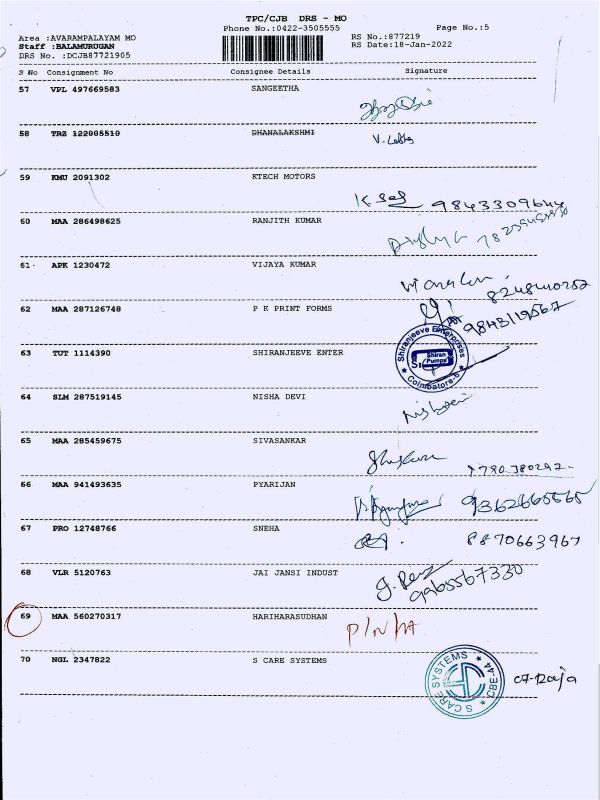 TPC/CJB DRS - MO
Phone No.:0422-3505555
Page No.:5
Area :AVARAMPALAYAM MO
RS No.:877219
Staff :BALAMURUGAN
RS Date:18-Jan-2022
DRS No. :DCJB87721905
S No Consignment No Consignee Details Signature
57 VPL 497669583 SANGEETHA
58 TRZ 122005510 DHANALAKSHMI
59 KMU 2091302 KTECH MOTORS
9843309644
60 MAA 286498625 RANJITH KUMAR
61 APK 1230472 VIJAYA KUMAR
8248440252
62 MAA 287126748 P K PRINT FORMS
9843119567
63 TUT 1114390 SHIRANJEEVE ENTER
Shiranjeeve Enterprises
Shiran Pumps
Coimbatore-6
64 SLM 287519145 NISHA DEVI
65 MAA 285459675 SIVASANKAR
66 MAA 941493635 PYARIJAN
9362665565
67 PRO 12748766 SNEHA
8870663967
68 VLR 5120763 JAI JANSI INDUST
9965567330
69 MAA 560270317 HARIHARASUDHAN
P/N/A
70 NGL 2347822 S CARE SYSTEMS
S CARE SYSTEMS
CBE-44